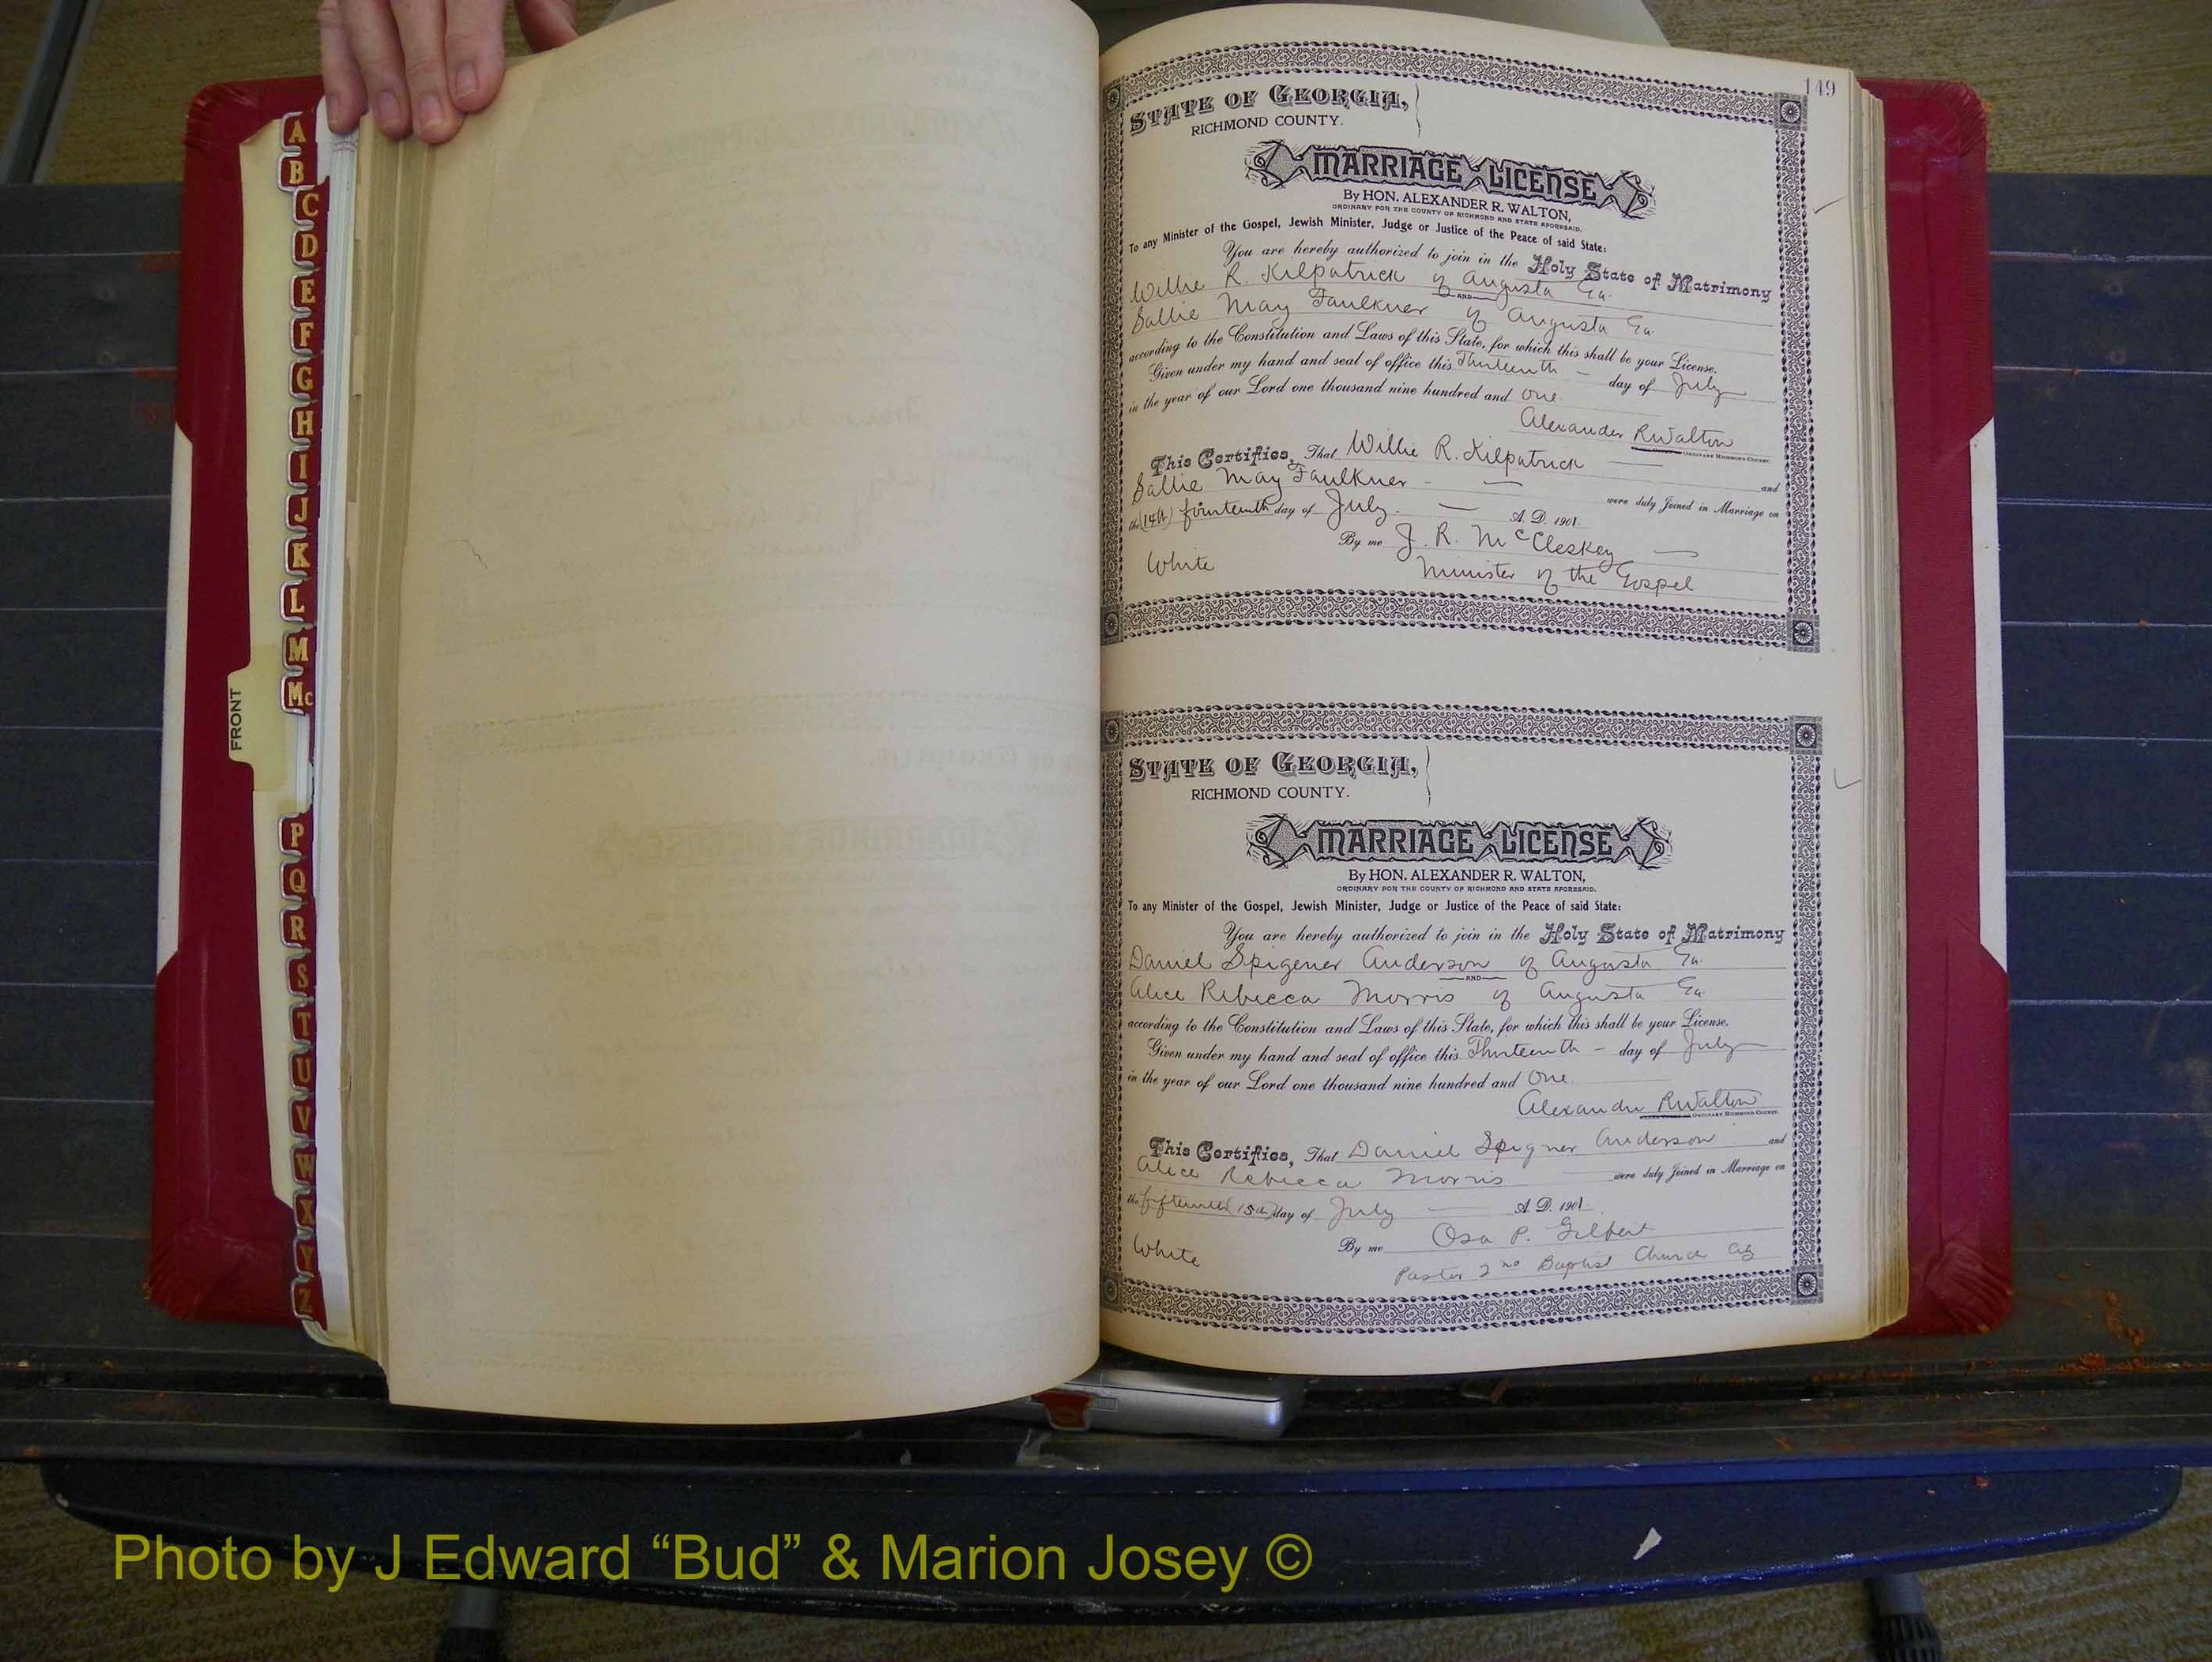 A
B
C
D
E
F
G
H
I
J
K
L
M
Mc
FRONT
P
Q
R
S
T
U
V
W
X
Y
Z
149
STATE OF GEORGIA,
RICHMOND COUNTY.
MARRIAGE LICENSE
By HON. ALEXANDER R. WALTON,
ORDINARY FOR THE COUNTY OF RICHMOND AND STATE AFORESAID.
To any Minister of the Gospel, Jewish Minister, Judge or Justice of the Peace of said State:
You are hereby authorized to join in the Holy State of Matrimony
Willie R. Kilpatrick of Augusta Ga.
AND
Sallie May Faulkner of Augusta Ga.
according to the Constitution and Laws of this State, for which this shall be your License.
Given under my hand and seal of office this Thirteenth – day of July
in the year of our Lord one thousand nine hundred and One
Alexander R Walton
ORDINARY RICHMOND COUNTY.
This Certifies, That Willie R. Kilpatrick — and
Sallie May Faulkner - — were duly Joined in Marriage on
the (14th) fourteenth day of July. — A. D. 1901.
By me J. R. McCleskey —
White Minister of the Gospel
STATE OF GEORGIA,
RICHMOND COUNTY.
MARRIAGE LICENSE
By HON. ALEXANDER R. WALTON,
ORDINARY FOR THE COUNTY OF RICHMOND AND STATE AFORESAID.
To any Minister of the Gospel, Jewish Minister, Judge or Justice of the Peace of said State:
You are hereby authorized to join in the Holy State of Matrimony
Daniel Spigener Anderson of Augusta Ga.
AND
Alice Rebecca Morris of Augusta Ga.
according to the Constitution and Laws of this State, for which this shall be your License.
Given under my hand and seal of office this Thirteenth – day of July
in the year of our Lord one thousand nine hundred and One
Alexander R Walton
ORDINARY RICHMOND COUNTY.
This Certifies, That Daniel Spigner Anderson and
Alice Rebecca Morris were duly Joined in Marriage on
the fifteenth (15th) day of July — A. D. 1901.
By me Osa P. Gilbert
White Pastor 2nd Baptist Church
Photo by J Edward “Bud” & Marion Josey ©